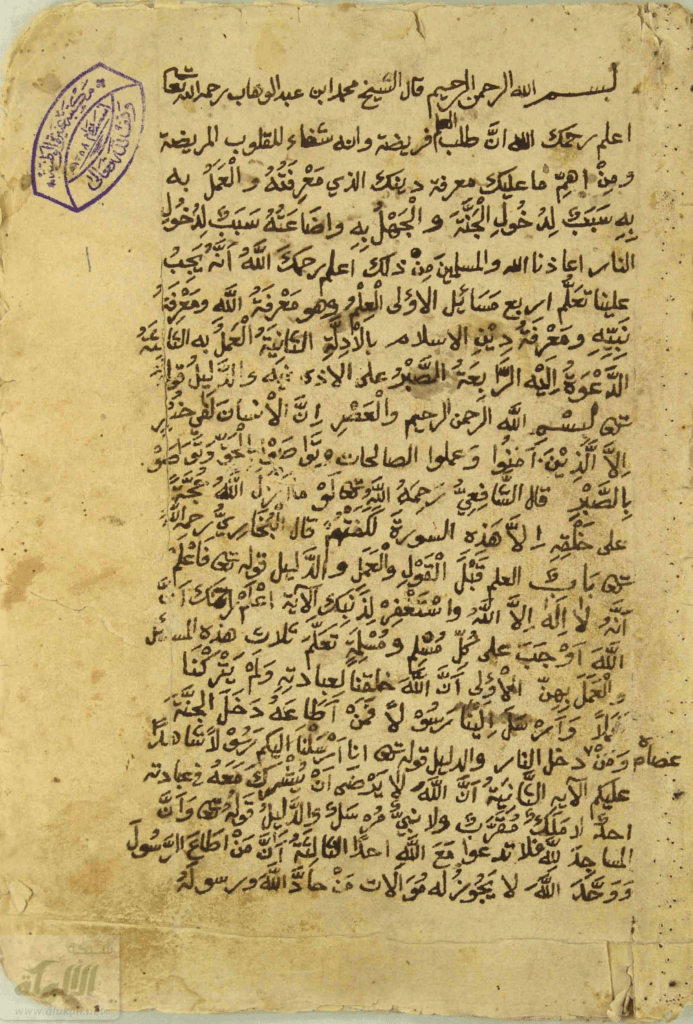 بسم الله الرحمن الرحيم قال الشيخ محمد ابن عبد الوهاب رحمه الله تعا
اعلم رحمك الله انَّ طلب العلم فريضة وانه شفاء للقلوب المريضة
ومِنْ اهمِّ ما عليك معرفة دينك الذي مَعْرِفَتُهُ والْعَمَلُ به
بِهِ سَبَبٌ لِدُخُولِ الْجَنَّةَ والْجَهْلُ بِهِ واضَاعَتُهُ سَبَبٌ لِدُخُولِ
النار اعاذنا الله والمسلمين مِنْ ذلك اعلم رحمكَ اللَّهُ أنَّهُ يَجِبُ
علينا تَعلُّم اربع مَسَائِل الاولى الْعِلْمُ وهو مَعْرِفَةُ اللَّه ومَعْرِفَةُ
نَبِيِّهِ ومَعْرِفَةُ دِيْنِ الاسلام بالأدِلَّةِ الثانِيَةُ الْعَمَلُ به الثالثَةُ
الدَّعْوَةُ إِلَيْهِ الرَّابِعَةُ الصَّبْرُ على الاذى فيه والدَّلِيلُ قوله
تعالى بِسْمِ اللَّه الرحمن الرحيم والْعَصْرِ اِنَّ الْأنسانَ لَفِي خُسْرٍ
اِلاَّ الَّذِيْنَ آمَنُوا وَعملوا الصالحات وتَوَاصَوْا بِالْحَقِّ وتَوَاصَوْ
بِالصَّبْرِ قال الشَّافِعِيُّ رَحِمَهُ اللَّهُ تعالى لَوْ مَا انْزَلَ اللَّهُ حُجَّةً
على خَلْقِهِ اِلاَّ هَذِهِ السُورةَ لَكَفَتْهُمْ قال الْبُخَارِيُّ رحمه اللَّهُ
تعالى بَابٌ العلم قَبْلَ الْقَوْلِ والْعَمَلِ والدَّلِيل قوله تعالى فَاعْلم
أنَّهُ لاَ اِلَهَ اِلاَّ اللَّهُ واسْتَغْفِرْ لِذَنْبِكَ الآيَةَ اعْلَمْ رحمك اَنَّ
اللَّهَ اَوْجَبَ على كُلِّ مُسْلِمٍ ومُسْلِمَةٍ تَعَلُّمَ ثلاث هذه المسائل
والْعَمَلَ بِهِنَّ الْأُولى اَنَّ اللَّهَ خلقنا لعبادتِهِ وَلَمْ يَتْرُكْنَا
هَمَلاً وَاَرْسَلَ اِلَيْنَا رَسُوْلاً فَمَنْ اَطَاعَهُ دَخَلَ الْجَنَّةَ
وَمَنْ عصاه دخل النار والدليل قوله تعالى انا اَرْسَلْنَا اليكم رَسُولاً شَاهداً
عليكم الآيه الثَّانِيَةُ اَنَّ اللَّهَ لا يَرْضى اَنْ يُشْرَكَ مَعَهُ في عبادته
احدٌ لا مَلَكٌ مُقَرَّبٌ ولا نبيٌّ مُرْسَلٌ والدَّلِيلُ قولهُ تعالى وَاَنَّ
المساجدَ لِلَّهِ فلا تدعوا مَعَ اللَّهِ احدًا الثالِثَةُ اَنَّ مَنْ اَطَاعَ الرَّسُولَ
وَوَحَّدَ اللَّهَ لا يَجُوزُ لَهُ مُوَالات مَنْ حادَّ اللَّهَ ورسولَهُ
شبكة
الألوكة
www.alukah.net